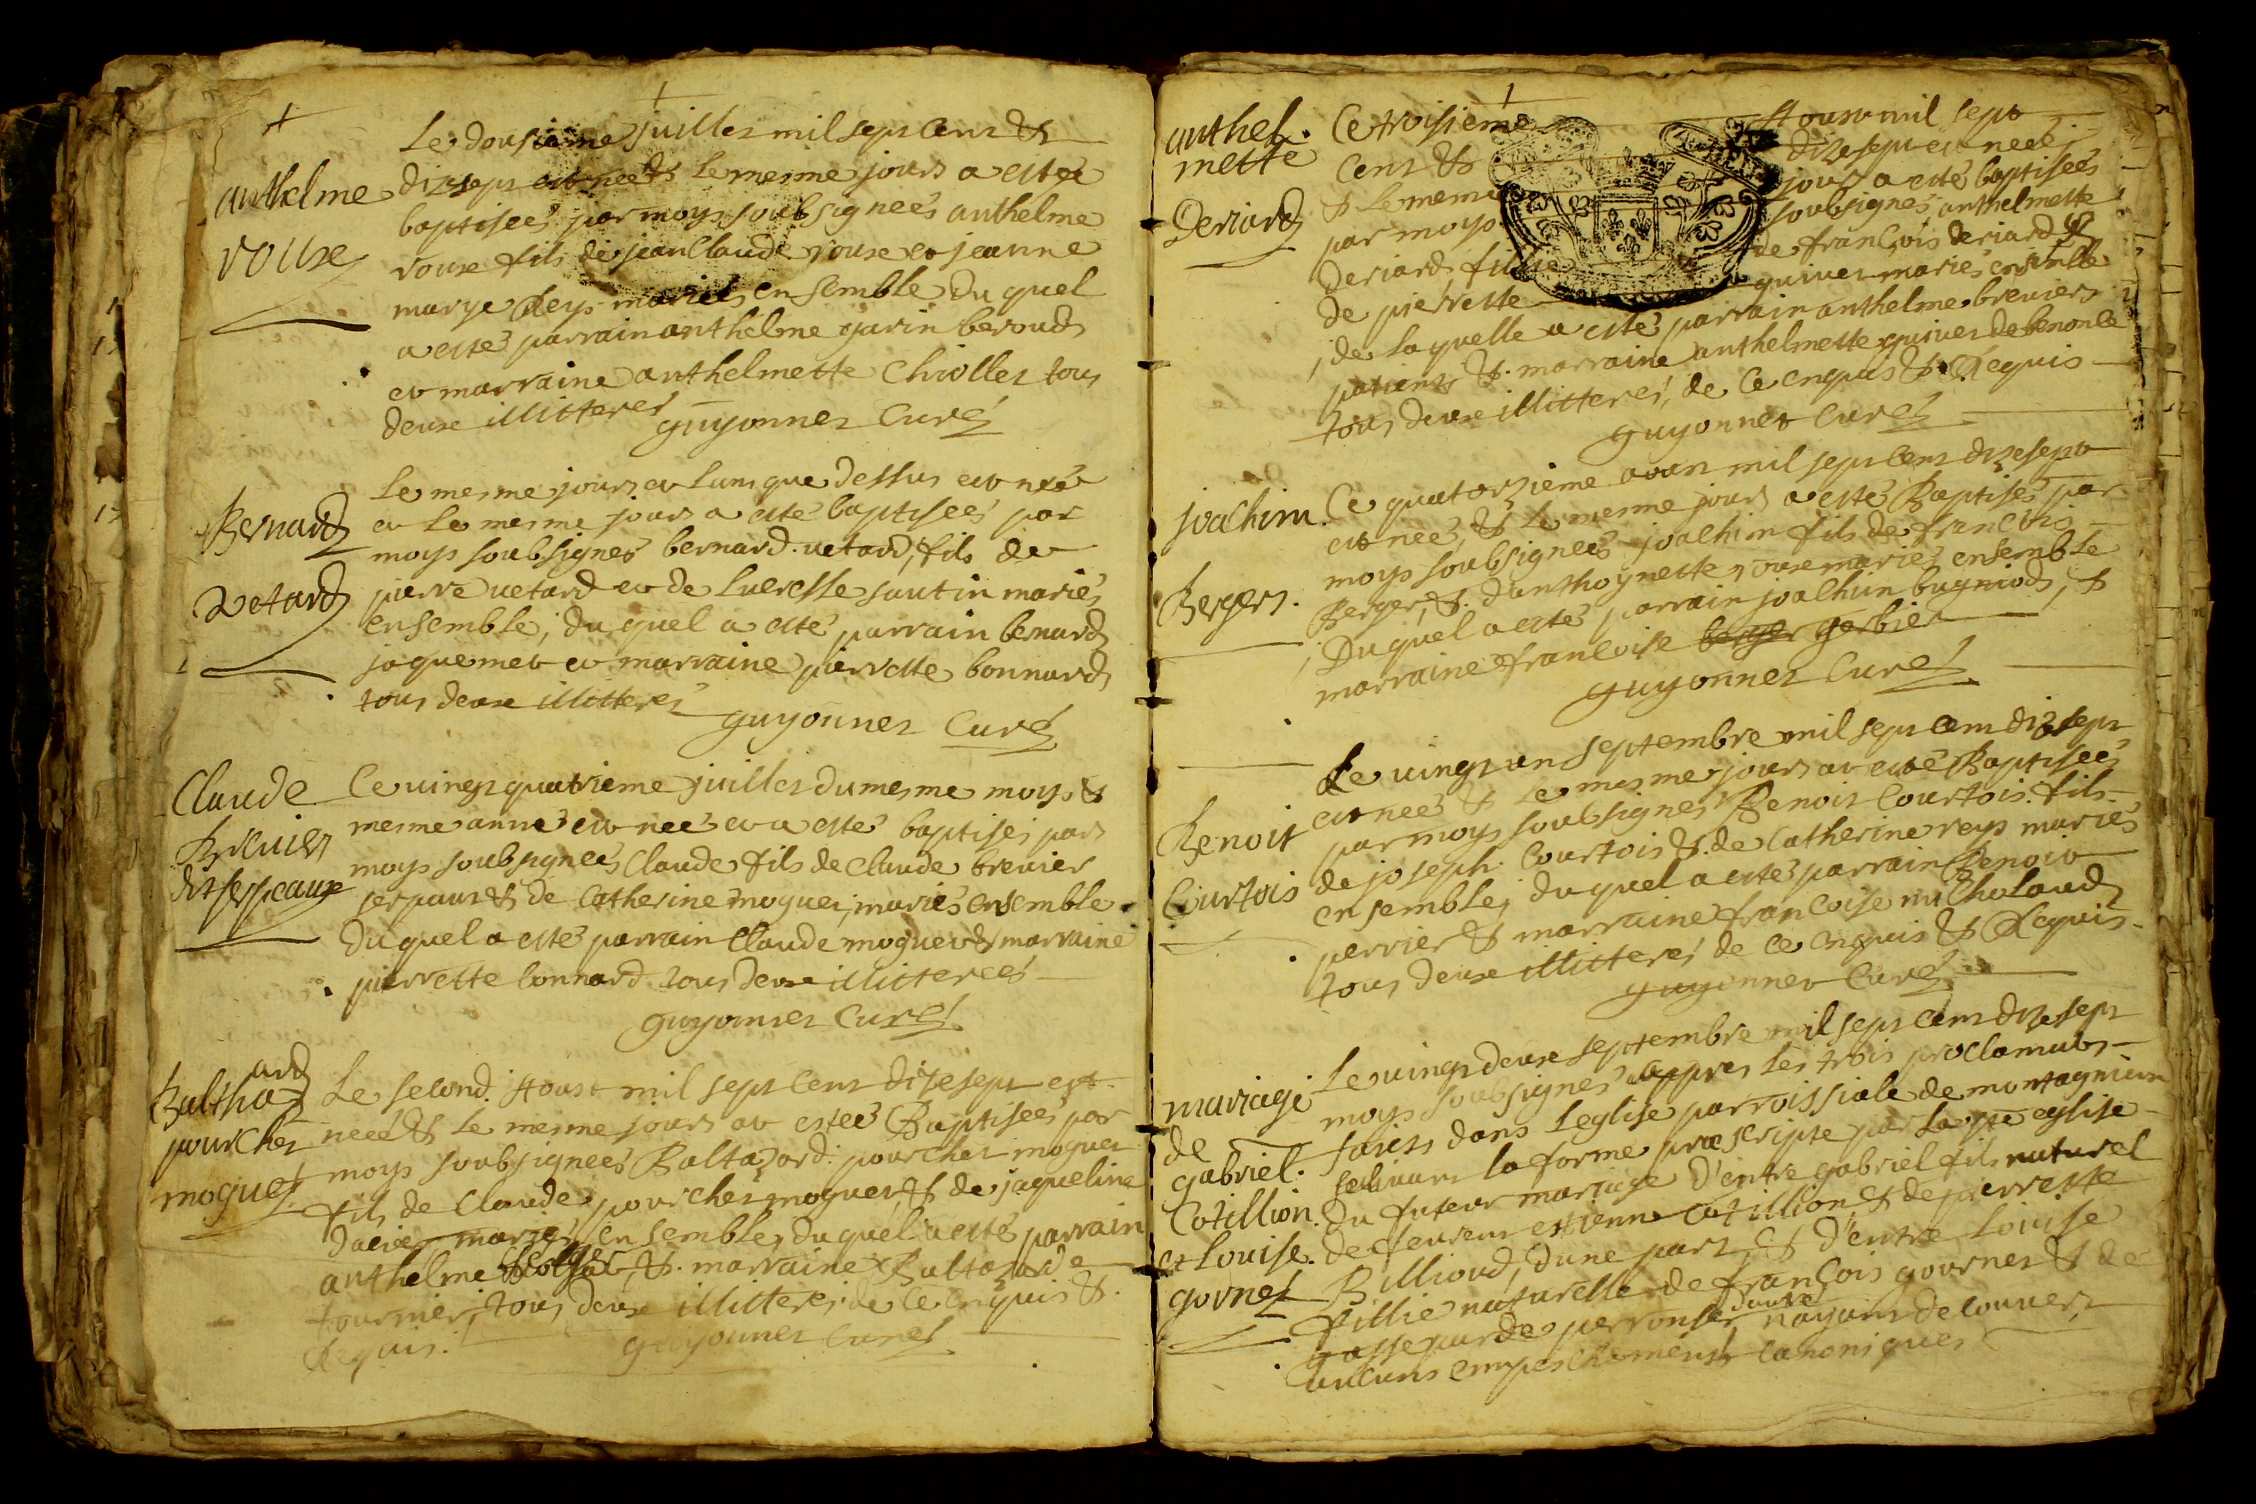 anthelme
roux
Le dousieme juillet mil sept cent &
dizsept est neé & le mesme jours a esteé
baptiseés par moys soubsigneés anthelme
roux fils de jean Claude roux et jeanne
marye Reys mariés ensemble du quel
a esté parrain anthelme garin beroud
et marraine anthelmette Chiollet tous
deux illitterés
guyonnet Curé
Bernard
Vetard
Le mesme jours et lans que dessus est neé
et le mesme jours a esté baptiseés par
moys soubsignés bernard vetard, fils de
pierre vetard et de lucresse sautin mariés
ensemble, du quel a esté parrain benard
jaquemet et marraine pierrette bonnard
tous deux illitterés
guyonnet Curé
Claude
Brevier
dit serpeaux
Ce vingt quatrieme juillet du mesme moys &
mesme anné est neé et a esté baptisés par
moys soubsigneés Claude fils de Claude brevier
serpaux & de Catherine moguet, mariés ensemble
du quel a esté parrain Claude moguet & marraine
pierrette bonnard tous deux illittereés
guyonnet Curé
Balthazard
pourchet
moguet
Le second Aoust mil sept cent dizesept est
neeé & le mesme jours at esteé Baptiseés par
moys soubsigneés Baltazard pourchet moguet
fils de Claude pourchet moguet & de jaqueline
mariés ensemble, du quel a esté parrain
anthelme &. marraine Baltazarde
tournier, tous deux illitterés, de ce enquis &
Requis.
guyonnet Curé
anthelmette
Deriard
Ce troisieme Aoust mil sept
cent & dizesept est neeé
& le mesme jours a esté baptiseés
par moys soubsignés anthelmette
deriard fillie de françois deriard &
de pierrette quinet mariés ensemble
, de la quelle a esté parrain anthelme brevier
patient & marraine anthelmette quinet de benonce
tous deux illitterés, de ce enquis & Requis
guyonnet Curé
joachim
Berger.
Ce quatorzieme aoan mil sept cent dizesept
est neé, & le mesme jours a esté Baptisés par
moys soubsigneés joachim fils de françois
Berger, &. danthoynette roux mariés ensemble
, Du quel a esté parrain joachim bugniod, &
marraine francoise gerbier
guyonnet Curé
Benoit
Courtois
Le vingt un septembre mil sept cent dizsept
est neé & le mesme jours at esté Baptiseés
par moys soubsignés Benoit Courtois fils
de joseph Courtois &. de Catherine reys mariés
ensemble, du quel a esté parrain Benoit
perrier & marraine francoise michalaud
tous deux illitterés de ce enquis & Requis
guyonnet Curé
mariage
de
gabriel
Cotillion
et Louise
gornet
Le vingt deux septembre mil sept cent dizesept
moys soubsignés appres les trois proclamats
faicts dans Leglise parroissiale de montagnieu
seluivant la forme præscripte par la ste eglise
du futeur mariage d'entre gabriel fils naturel
de feu estienne Cotillion & de pierrette
Billioud, d'une part, & d'entre Louise
fillie naturelle de françois gournet & de
gasseparde perronset d'autre nayant decouvert
aucuns empeschements canoniques